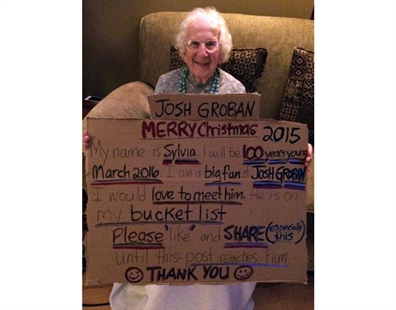 JOSH GROBAN
MERRY Christmas 2015
My name is Sylvia. I will be 100 years young
March 2016. I am a big fan of JOSH GROBAN
I would love to meet him. He is on
my bucket list
Please "like" and SHARE (especially this)
until this post reaches him
☺ THANK YOU ☺